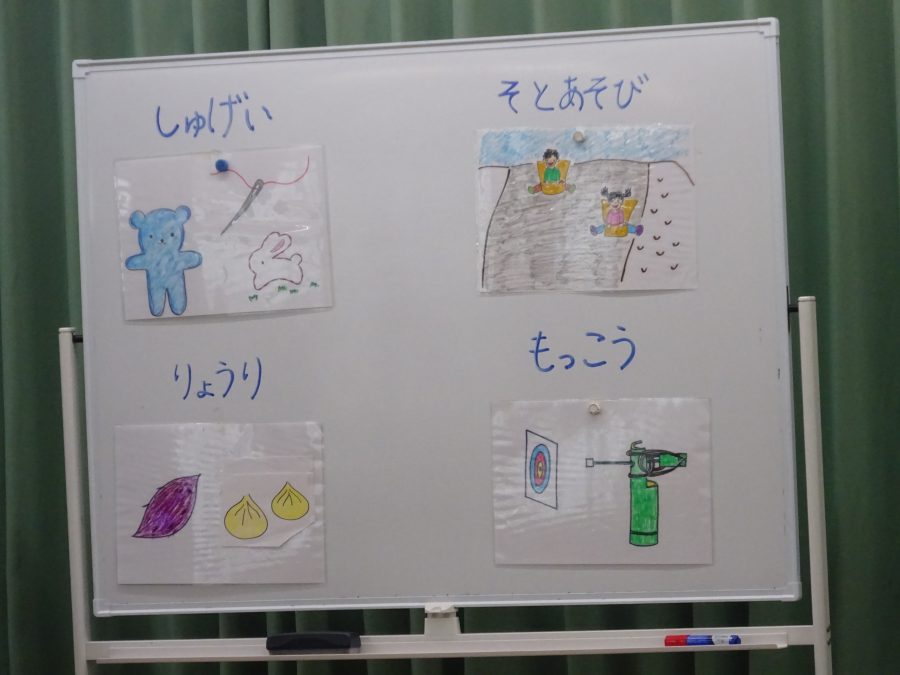 しゅげい
そとあそび
りょうり
もっこう